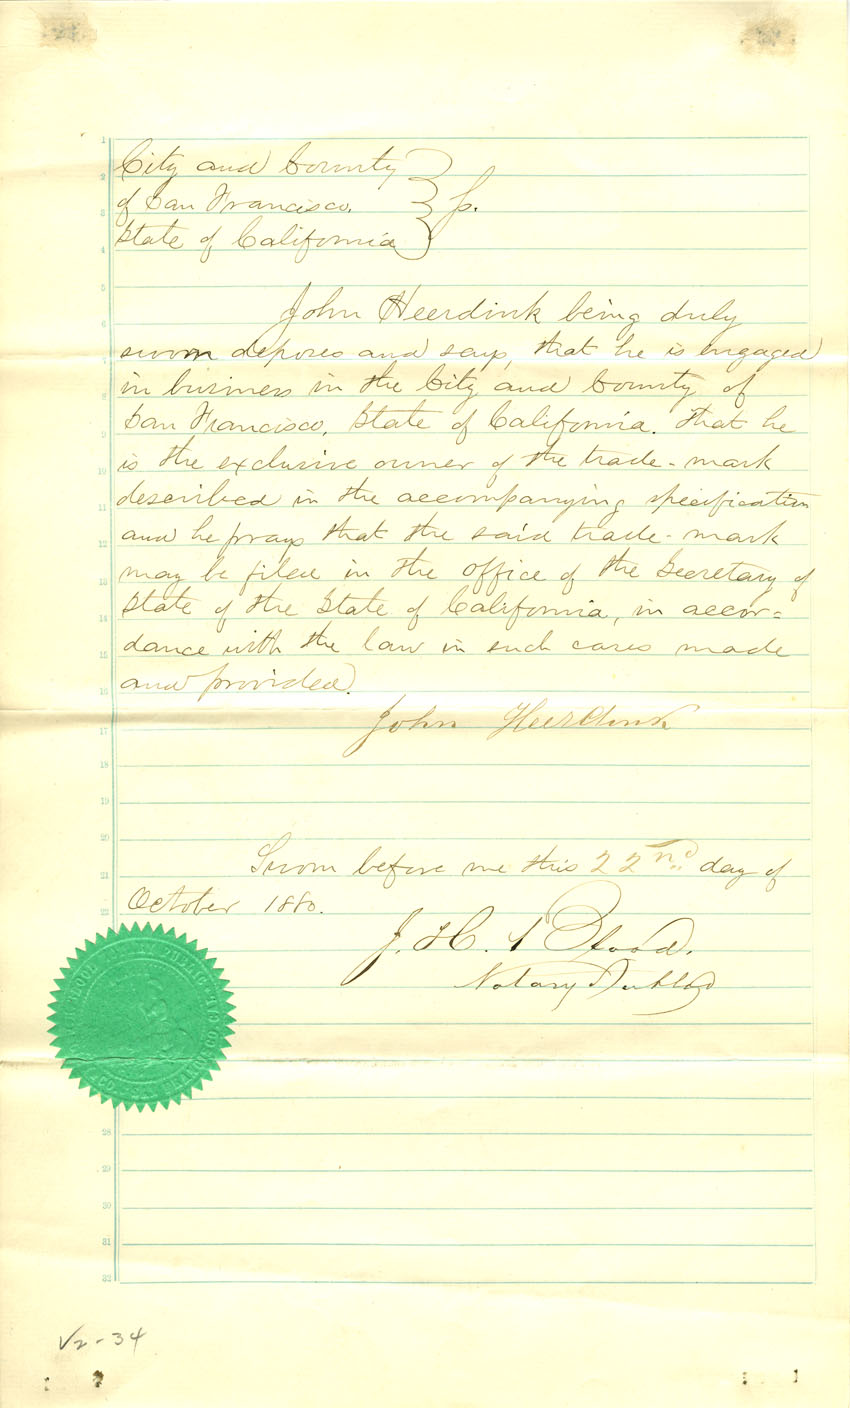 City and County
of San Francisco. } ss.
State of California
John Heerdink being duly
sworn deposes and says, that he is engaged
in business in the City and County of
San Francisco, State of California. That he
is the exclusive owner of the trade-mark
described in the accompanying specification
and he prays that the said trade-mark
may be filed in the office of the Secretary of
State of the State of California, in accor=
dance with the law in such cases made
and provided.
John Heerdink
Sworn before me this 22nd day of
October 1880.
J. H. Blood.
Notary Public
NOTARY PUBLIC
V2-34
1
2
3
4
5
6
7
8
9
10
11
12
13
14
15
16
17
18
19
20
21
22
28
29
30
31
32